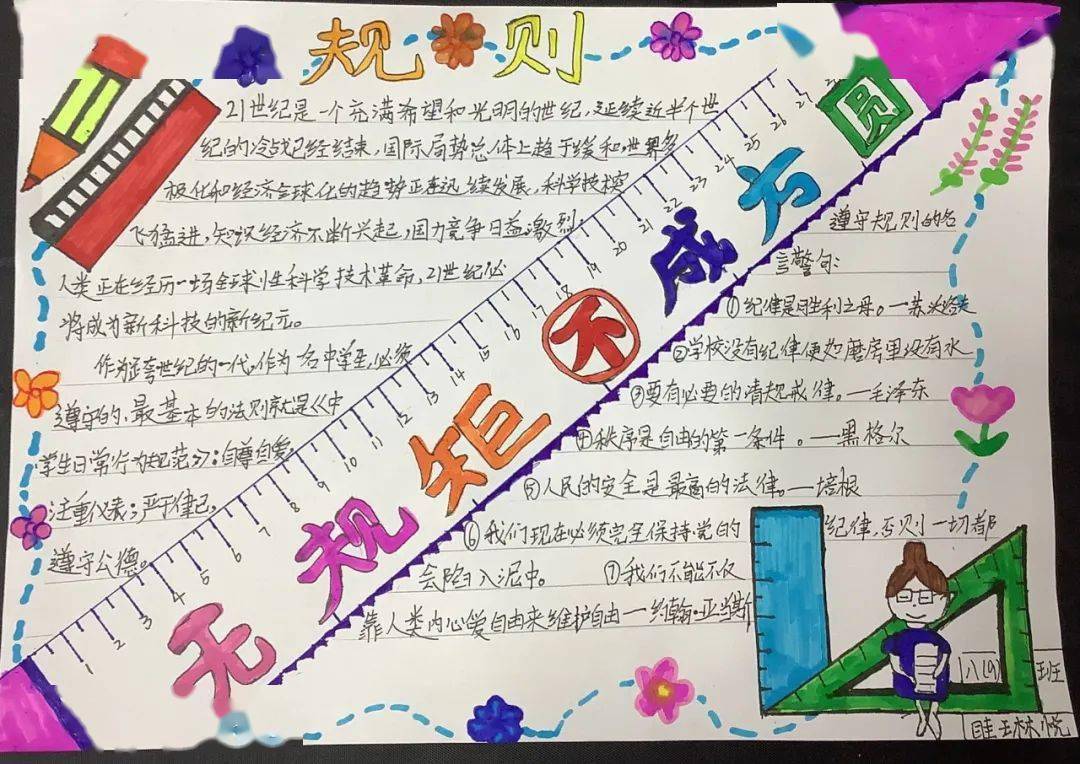 规则
21世纪是一个充满希望和光明的世纪,延续近半个世
纪的冷战已经结束,国际局势总体上趋于缓和,世界多
极化和经济全球化的趋势正迅续发展,科学技
飞猛进,知识经济不断兴起,国力竞争日益激烈;
人类正在经历一场全球性科学技术革命,21世纪必
将成为新科技的新纪元。
作为跨世纪的一代,作为一名中学生,必须
遵守的、最基本的法则就是《中
学生日常行为规范》:自尊自爱,
注重仪表;严于律己,
遵守公德。
无规矩不成方圆
1 2 3 4 5 6 7 8 9 10 11 12 13 14 15 16 17 18 19 20 21 22 23 24 25 26 27
遵守规则的名
言警句:
①纪律是胜利之母。—苏沃洛夫
②学校没有纪律便如磨房里没有水
③要有必要的清规戒律。—毛泽东
④秩序是自由的第一条件。—黑格尔
⑤人民的安全是最高的法律。—培根
⑥我们现在必须完全保持党的纪律,否则一切都
会陷入泥中。 ⑦我们不能不仅
靠人类内心爱自由来维护自由—约翰·亚当斯
八(9)班